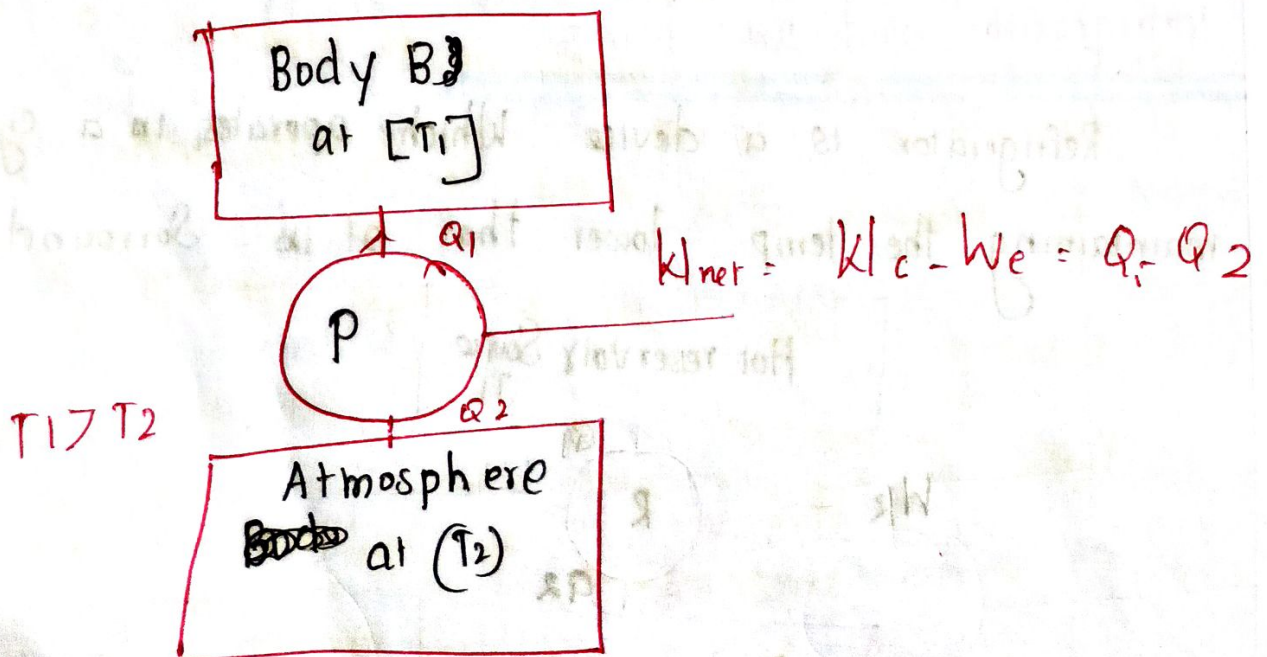 Body B
at [T1]
Q1
Wnet = Wc - We = Q1 - Q2
P
Q2
T1 > T2
Atmosphere
at (T2)